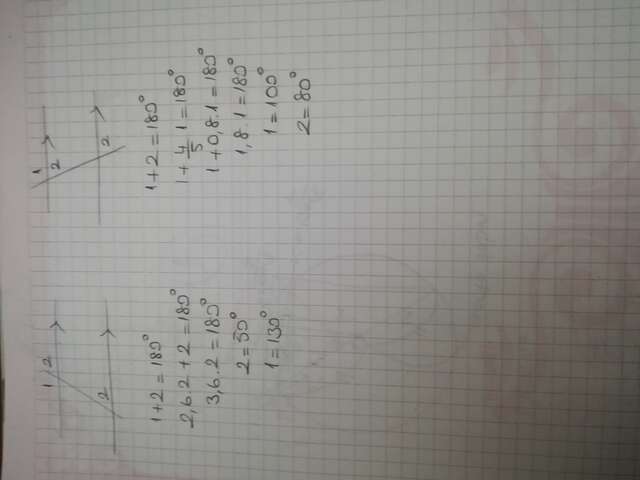 1 2
2
1+2=180°
2,6.2+2=180°
3,6.2=180°
2=50°
1=130°
1
2
2
1+2=180°
1+4/5 1=180°
1+0,8.1=180°
1,8.1=180°
1=100°
2=80°